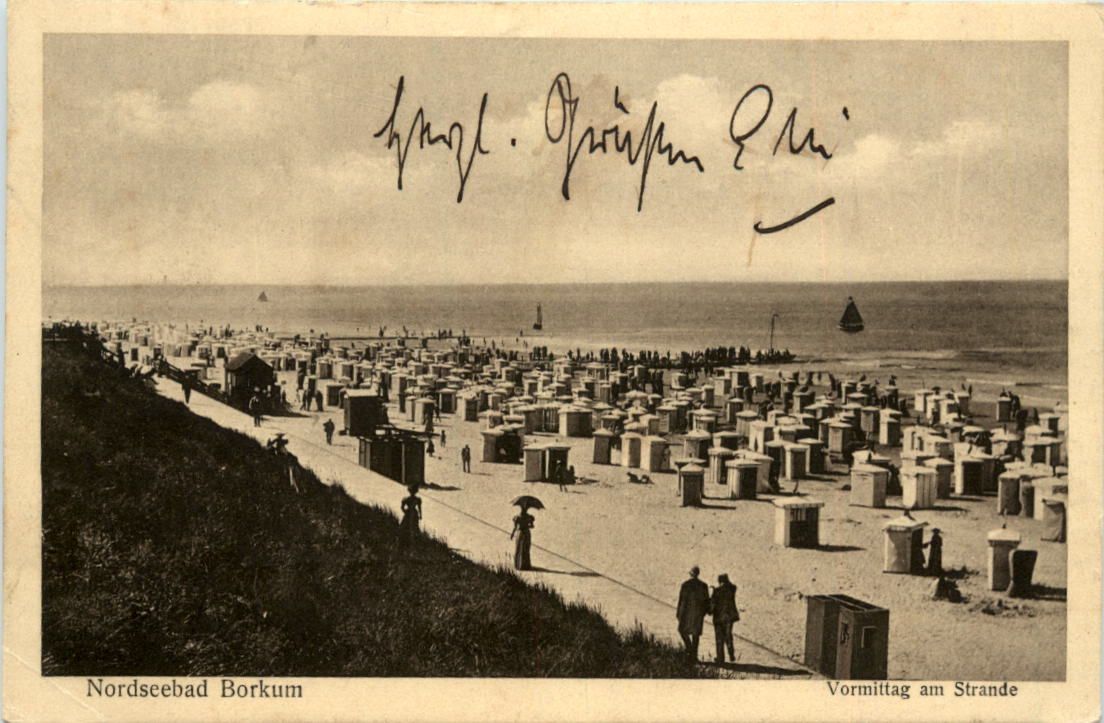 Herzl. Grüßen
Nordseebad Borkum
Vormittag am Strande